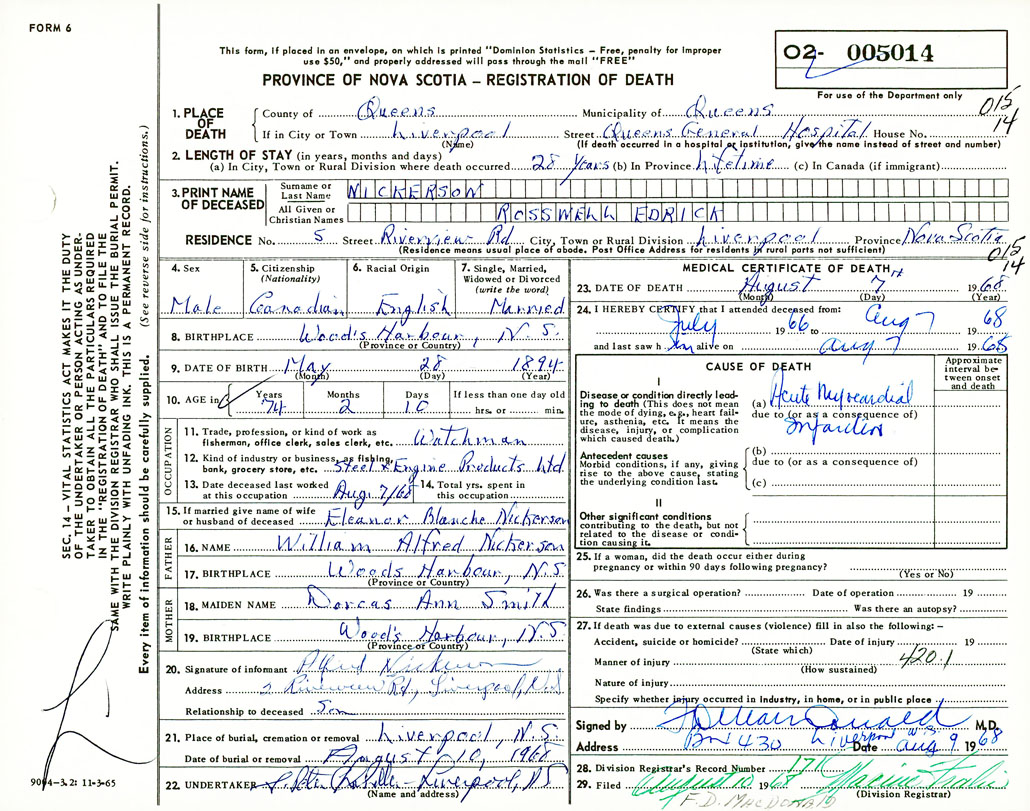 FORM 6
This form, if placed in an envelope, on which is printed "Dominion Statistics – Free, penalty for improper
use $50," and properly addressed will pass through the mail "FREE"
PROVINCE OF NOVA SCOTIA – REGISTRATION OF DEATH
02- 005014
For use of the Department only
015
14
1. PLACE OF DEATH
County of Queens Municipality of Queens
If in City or Town Liverpool Street Queens General Hospital House No.
(Name) (If death occurred in a hospital or institution, give the name instead of street and number)
2. LENGTH OF STAY (in years, months and days)
(a) In City, Town or Rural Division where death occurred 28 years (b) In Province lifetime (c) In Canada (if immigrant)
3. PRINT NAME OF DECEASED
Surname or Last Name NICKERSON
All Given or Christian Names ROSSWELL EDRICK
RESIDENCE No. 5 Street Riverview Rd City, Town or Rural Division Liverpool Province Nova Scotia
(Residence means usual place of abode. Post Office Address for residents in rural parts not sufficient)
015
14
4. Sex
Male
5. Citizenship (Nationality)
Canadian
6. Racial Origin
English
7. Single, Married, Widowed or Divorced (write the word)
Married
8. BIRTHPLACE Wood's Harbour, N.S.
(Province or Country)
9. DATE OF BIRTH May 28 1894
(Month) (Day) (Year)
10. AGE in Years Months Days If less than one day old
74 2 10 hrs. or min.
OCCUPATION
11. Trade, profession, or kind of work as
fisherman, office clerk, sales clerk, etc. Watchman
12. Kind of industry or business, as fishing,
bank, grocery store, etc. Steel & Engine Products Ltd
13. Date deceased last worked
at this occupation Aug. 7/68
14. Total yrs. spent in
this occupation
15. If married give name of wife
or husband of deceased Eleanor Blanche Nickerson
FATHER
16. NAME William Alfred Nickerson
17. BIRTHPLACE Woods Harbour, N.S
(Province or Country)
MOTHER
18. MAIDEN NAME Dorcas Ann Smith
19. BIRTHPLACE Wood's Harbour, N.S
(Province or Country)
20. Signature of informant Nickerson
Address Riverview Rd, Liverpool, N.S
Relationship to deceased Son
21. Place of burial, cremation or removal Liverpool, N.S.
Date of burial or removal August 10, 1968
22. UNDERTAKER Liverpool, NS
(Name and address)
MEDICAL CERTIFICATE OF DEATH
23. DATE OF DEATH August 7 1968
(Month) (Day) (Year)
24. I HEREBY CERTIFY that I attended deceased from:
July 1966 to Aug 7 1968
and last saw him alive on Aug 7 1968
CAUSE OF DEATH
Approximate interval between onset and death
I
Disease or condition directly leading to death (This does not mean the mode of dying, e.g., heart failure, asthenia, etc. It means the disease, injury, or complication which caused death.)
(a) Acute Myocardial
due to (or as a consequence of)
Infarction
Antecedent causes
Morbid conditions, if any, giving rise to the above cause, stating the underlying condition last.
(b)
due to (or as a consequence of)
(c)
II
Other significant conditions
contributing to the death, but not related to the disease or condition causing it.
25. If a woman, did the death occur either during
pregnancy or within 90 days following pregnancy?
(Yes or No)
26. Was there a surgical operation? Date of operation 19
State findings Was there an autopsy?
27. If death was due to external causes (violence) fill in also the following: –
Accident, suicide or homicide? Date of injury 19
(State which)
Manner of injury 420.1
(How sustained)
Nature of injury
Specify whether injury occurred in industry, in home, or in public place
Signed by M.D.
Address Box 430 Liverpool N.S. Date Aug 9 1968
28. Division Registrar's Record Number 171
29. Filed August 10 1968
(Division Registrar)
F.D. MacDonald
SEC. 14 – VITAL STATISTICS ACT MAKES IT THE DUTY
OF THE UNDERTAKER OR PERSON ACTING AS UNDER-
TAKER TO OBTAIN ALL THE PARTICULARS REQUIRED
IN THE "REGISTRATION OF DEATH" AND TO FILE THE
SAME WITH THE DIVISION REGISTRAR WHO SHALL ISSUE THE BURIAL PERMIT.
WRITE PLAINLY WITH UNFADING INK. THIS IS A PERMANENT RECORD.
Every item of information should be carefully supplied. (See reverse side for instructions.)
9004-3.2: 11-3-65